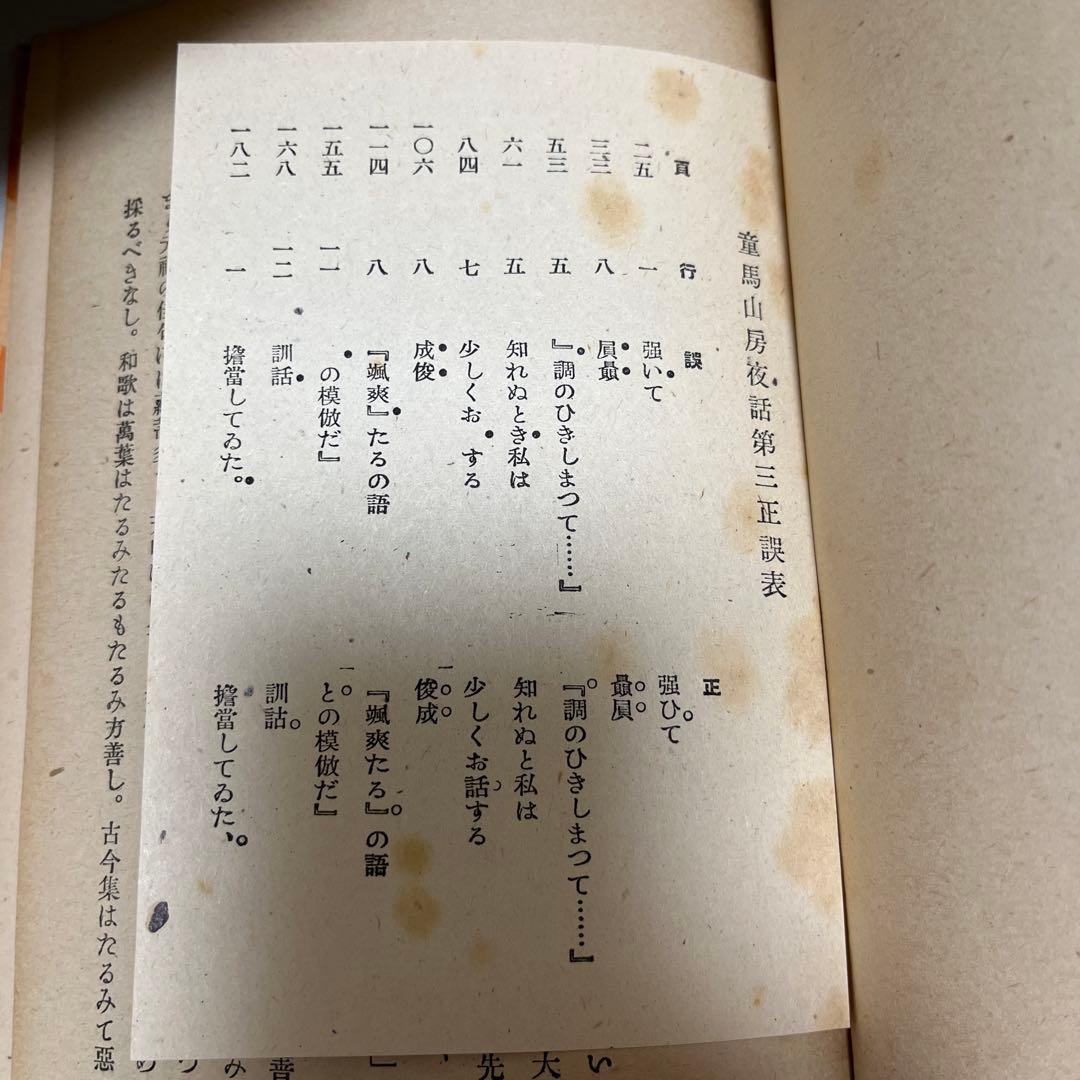 童馬山房夜話第三正誤表
頁 行 誤 正
二五 一 强いて 强ひて
三三 八 屓贔 贔屓
五三 五 』調のひきしまつて……』 『調のひきしまつて……』
六一 五 知れぬとき私は 知れぬと私は
八四 七 少しくお する 少しくお話する
一〇六 八 成俊 俊成
一一四 八 『颯爽』たるの語 『颯爽たる』の語
一五五 一一 の模倣だ』 との模倣だ』
一六八 一二 訓話 訓詁
一八二 一 擔當してゐた。 擔當してゐた、
採るべきなし。和歌は萬葉はたるみたるもたるみ方善し。古今集はたるみて惡